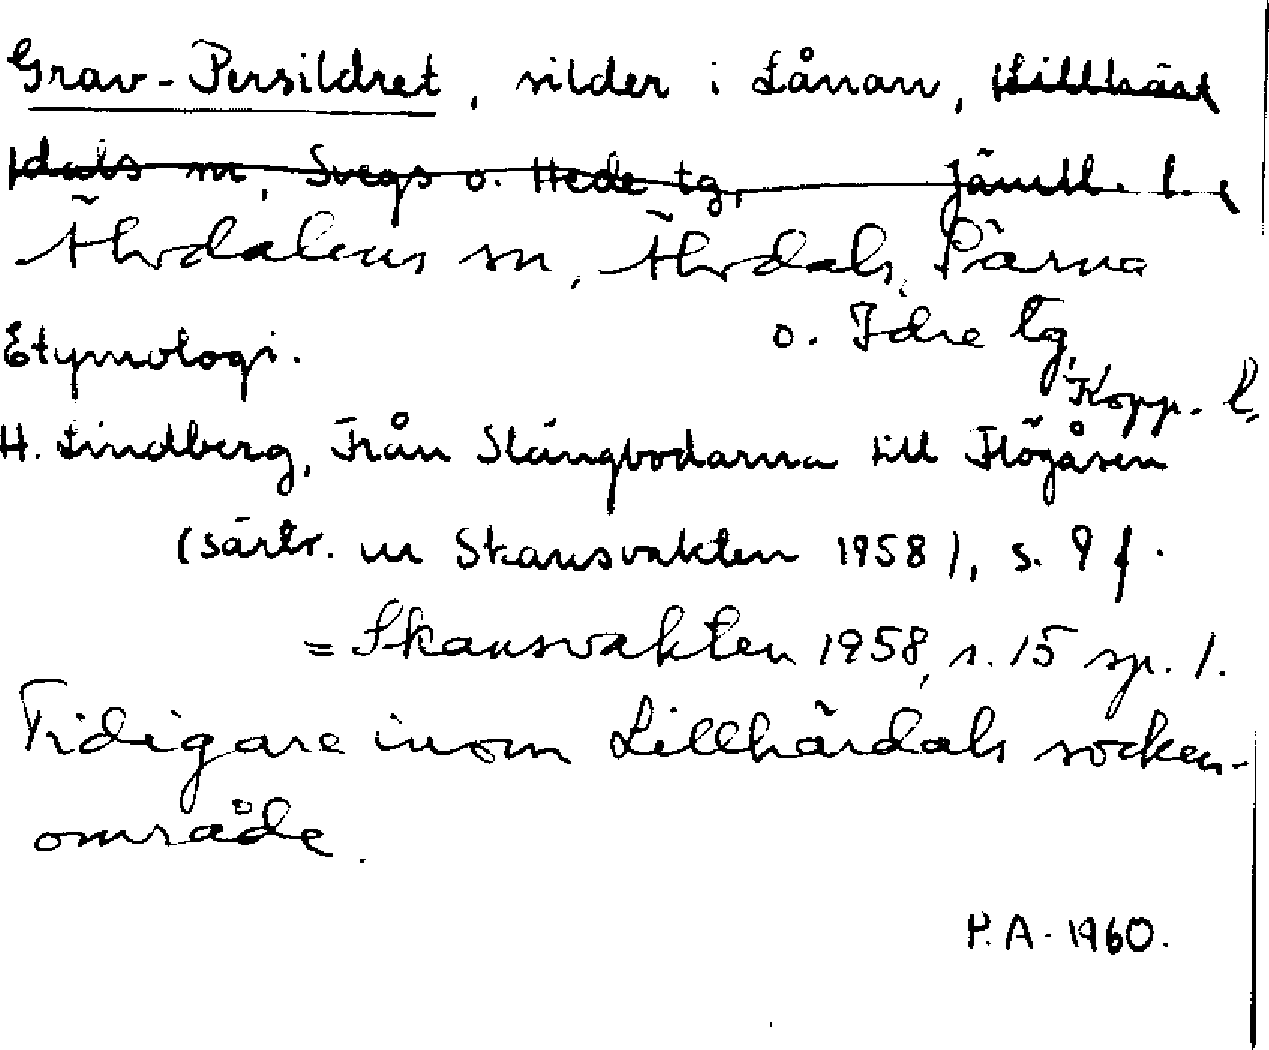 Grav-Persildret, silder i Lånan, Lillhär
dals sn, Svegs o. Hede tg, Jämtl. l.
Älvdalens sn, Älvdals, Särna
o. Idre tg,
Etymologi.
Kopp. l.
H. Lindberg, Från Slängbodarna till Flögåsen
(särtr. ur Skansvakten 1958), s. 9 f.
= Skansvakten 1958, s. 15 sp. 1.
Tidigare inom Lillhärdals socken-
område.
P.A. 1960.